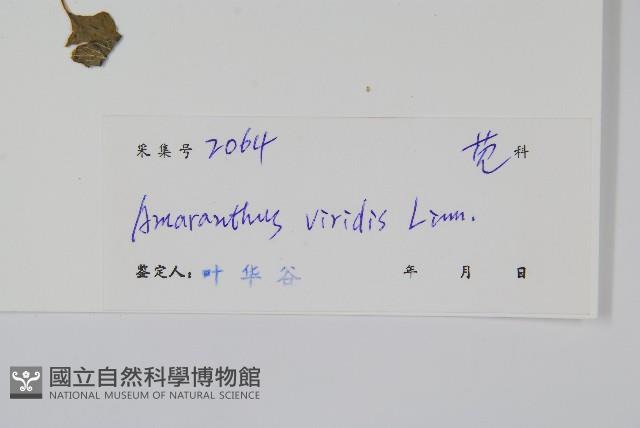 采集号 2064 苋 科
Amaranthus viridis Linn.
鉴定人: 叶 华 谷 年 月 日
國立自然科學博物館
NATIONAL MUSEUM OF NATURAL SCIENCE